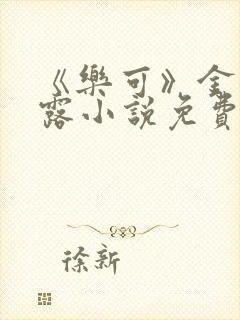 《樂可》金
露小說免費
徐新